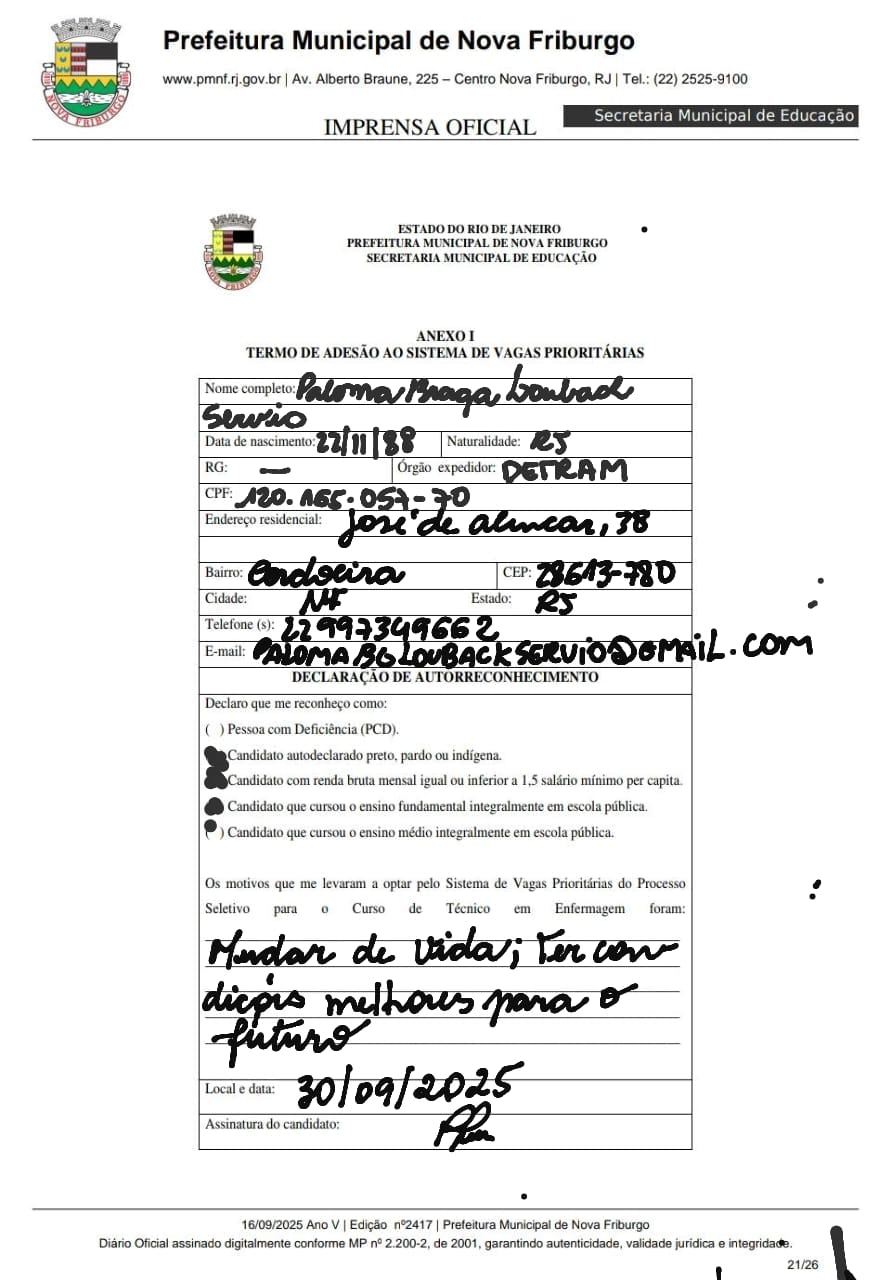 Prefeitura Municipal de Nova Friburgo
www.pmnf.rj.gov.br | Av. Alberto Braune, 225 – Centro Nova Friburgo, RJ | Tel.: (22) 2525-9100
IMPRENSA OFICIAL
Secretaria Municipal de Educação
NOVA FRIBURGO
ESTADO DO RIO DE JANEIRO
PREFEITURA MUNICIPAL DE NOVA FRIBURGO
SECRETARIA MUNICIPAL DE EDUCAÇÃO
NOVA FRIBURGO
ANEXO I
TERMO DE ADESÃO AO SISTEMA DE VAGAS PRIORITÁRIAS
Nome completo: Paloma Braga Louback
Servio
Data de nascimento: 22/11/88 Naturalidade: RJ
RG: — Órgão expedidor: DETRAM
CPF: 120.165.057-70
Endereço residencial: José de alencar, 38
Bairro: Cordoeira CEP: 28613-780
Cidade: NF Estado: RJ
Telefone (s): 22997349662
E-mail: PALOMABGLOUBACKSERVIO@GMAIL.COM
DECLARAÇÃO DE AUTORRECONHECIMENTO
Declaro que me reconheço como:
( ) Pessoa com Deficiência (PCD).
Candidato autodeclarado preto, pardo ou indígena.
Candidato com renda bruta mensal igual ou inferior a 1,5 salário mínimo per capita.
Candidato que cursou o ensino fundamental integralmente em escola pública.
( ) Candidato que cursou o ensino médio integralmente em escola pública.
Os motivos que me levaram a optar pelo Sistema de Vagas Prioritárias do Processo
Seletivo para o Curso de Técnico em Enfermagem foram:
Mudar de vida; Ter con
dições melhores para o
futuro
Local e data: 30/09/2025
Assinatura do candidato:
16/09/2025 Ano V | Edição nº2417 | Prefeitura Municipal de Nova Friburgo
Diário Oficial assinado digitalmente conforme MP nº 2.200-2, de 2001, garantindo autenticidade, validade jurídica e integridade.
21/26